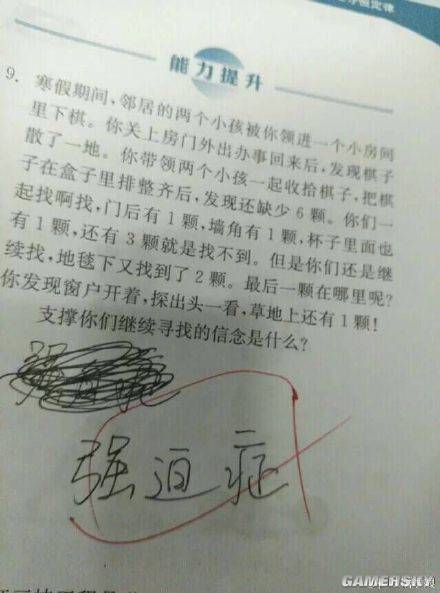 恒定律
能力提升
9. 寒假期间，邻居的两个小孩被你领进一个小房间
里下棋。你关上房门外出办事回来后，发现棋子
散了一地。你带领两个小孩一起收拾棋子，把棋
子在盒子里排整齐后，发现还缺少6颗。你们一
起找啊找，门后有1颗，墙角有1颗，杯子里面也
有1颗，还有3颗就是找不到。但是你们还是继
续找，地毯下又找到了2颗。最后一颗在哪里呢？
你发现窗户开着，探出头一看，草地上还有1颗！
支撑你们继续寻找的信念是什么？
强迫症
GAMERSKY